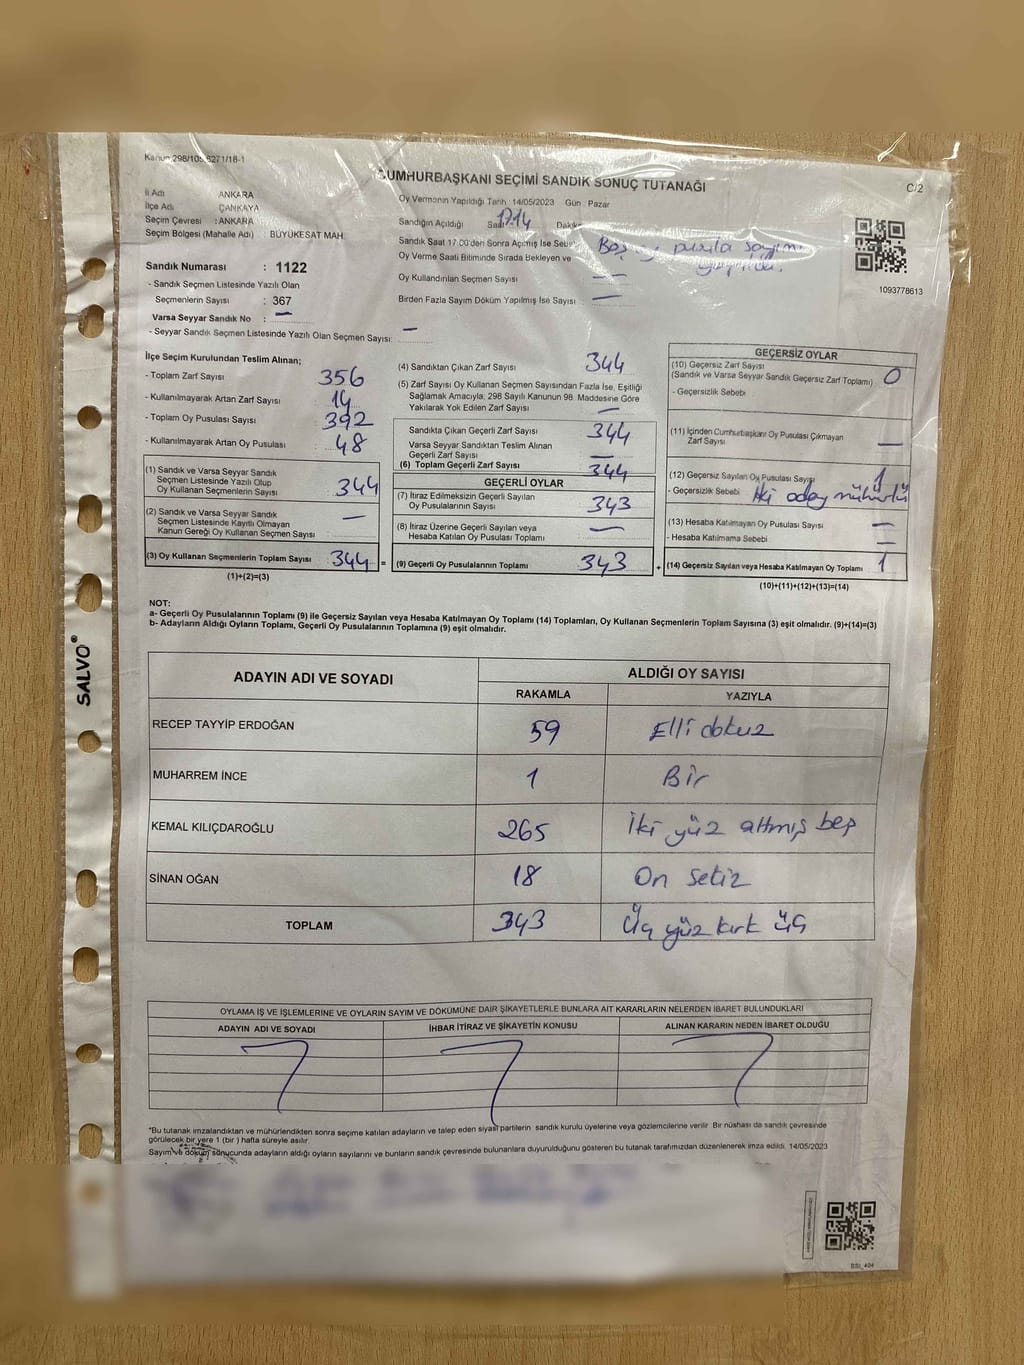 Kanun 298/105,6271/18-1
CUMHURBAŞKANI SEÇİMİ SANDIK SONUÇ TUTANAĞI
C/2
İl Adı ANKARA
İlçe Adı ÇANKAYA
Seçim Çevresi : ANKARA
Seçim Bölgesi (Mahalle Adı) : BÜYÜKESAT MAH.
Oy Vermenin Yapıldığı Tarih 14/05/2023 Gün : Pazar
Sandığın Açıldığı Saat 17.14 Dakika
Sandık Saat 17.00'den Sonra Açılmış İse Sebebi Boş oy pusula sayımı
Oy Verme Saati Bitiminde Sırada Bekleyen ve
Oy Kullandırılan Seçmen Sayısı —
Birden Fazla Sayım Döküm Yapılmış İse Sayısı —
1093778613
Sandık Numarası : 1122
- Sandık Seçmen Listesinde Yazılı Olan
Seçmenlerin Sayısı : 367
Varsa Seyyar Sandık No : —
- Seyyar Sandık Seçmen Listesinde Yazılı Olan Seçmen Sayısı: —
İlçe Seçim Kurulundan Teslim Alınan;
- Toplam Zarf Sayısı 356
- Kullanılmayarak Artan Zarf Sayısı 14
- Toplam Oy Pusulası Sayısı 392
- Kullanılmayarak Artan Oy Pusulası 48
(1) Sandık ve Varsa Seyyar Sandık
Seçmen Listesinde Yazılı Olup
Oy Kullanan Seçmenlerin Sayısı 344
(2) Sandık ve Varsa Seyyar Sandık
Seçmen Listesinde Kayıtlı Olmayan
Kanun Gereği Oy Kullanan Seçmen Sayısı —
(3) Oy Kullanan Seçmenlerin Toplam Sayısı 344 =
(1)+(2)=(3)
(4) Sandıktan Çıkan Zarf Sayısı 344
(5) Zarf Sayısı Oy Kullanan Seçmen Sayısından Fazla İse, Eşitliği
Sağlamak Amacıyla, 298 Sayılı Kanunun 98. Maddesine Göre
Yakılarak Yok Edilen Zarf Sayısı —
Sandıkta Çıkan Geçerli Zarf Sayısı 344
Varsa Seyyar Sandıktan Teslim Alınan
Geçerli Zarf Sayısı —
(6) Toplam Geçerli Zarf Sayısı 344
GEÇERLİ OYLAR
(7) İtiraz Edilmeksizin Geçerli Sayılan
Oy Pusulalarının Sayısı 343
(8) İtiraz Üzerine Geçerli Sayılan veya
Hesaba Katılan Oy Pusulası Toplamı —
(9) Geçerli Oy Pusulalarının Toplamı 343 +
GEÇERSİZ OYLAR
(10) Geçersiz Zarf Sayısı
(Sandık ve Varsa Seyyar Sandık Geçersiz Zarf Toplamı) 0
- Geçersizlik Sebebi
(11) İçinden Cumhurbaşkanı Oy Pusulası Çıkmayan
Zarf Sayısı —
(12) Geçersiz Sayılan Oy Pusulası Sayısı 1
- Geçersizlik Sebebi İki aday mühürlü
(13) Hesaba Katılmayan Oy Pusulası Sayısı —
- Hesaba Katılmama Sebebi —
(14) Geçersiz Sayılan veya Hesaba Katılmayan Oy Toplamı 1
(10)+(11)+(12)+(13)=(14)
NOT:
a- Geçerli Oy Pusulalarının Toplamı (9) ile Geçersiz Sayılan veya Hesaba Katılmayan Oy Toplamı (14) Toplamları, Oy Kullanan Seçmenlerin Toplam Sayısına (3) eşit olmalıdır. (9)+(14)=(3)
b- Adayların Aldığı Oyların Toplamı, Geçerli Oy Pusulalarının Toplamına (9) eşit olmalıdır.
SALVO®
ADAYIN ADI VE SOYADI ALDIĞI OY SAYISI
RAKAMLA YAZIYLA
RECEP TAYYİP ERDOĞAN 59 Elli dokuz
MUHARREM İNCE 1 Bir
KEMAL KILIÇDAROĞLU 265 İki yüz altmış beş
SİNAN OĞAN 18 On sekiz
TOPLAM 343 Üç yüz kırk üç
OYLAMA İŞ VE İŞLEMLERİNE VE OYLARIN SAYIM VE DÖKÜMÜNE DAİR ŞİKAYETLERLE BUNLARA AİT KARARLARIN NELERDEN İBARET BULUNDUKLARI
ADAYIN ADI VE SOYADI İHBAR İTİRAZ VE ŞİKAYETİN KONUSU ALINAN KARARIN NEDEN İBARET OLDUĞU
*Bu tutanak imzalandıktan ve mühürlendikten sonra seçime katılan adayların ve talep eden siyasi partilerin sandık kurulu üyelerine veya gözlemcilerine verilir. Bir nüshası da sandık çevresinde
görülecek bir yere 1 (bir) hafta süreyle asılır.
Sayım ve döküm sonucunda adayların aldığı oyların sayılarını ve bunların sandık çevresinde bulunanlara duyurulduğunu gösteren bu tutanak tarafımızdan düzenlenerek imza edildi. 14/05/2023
BSI_404